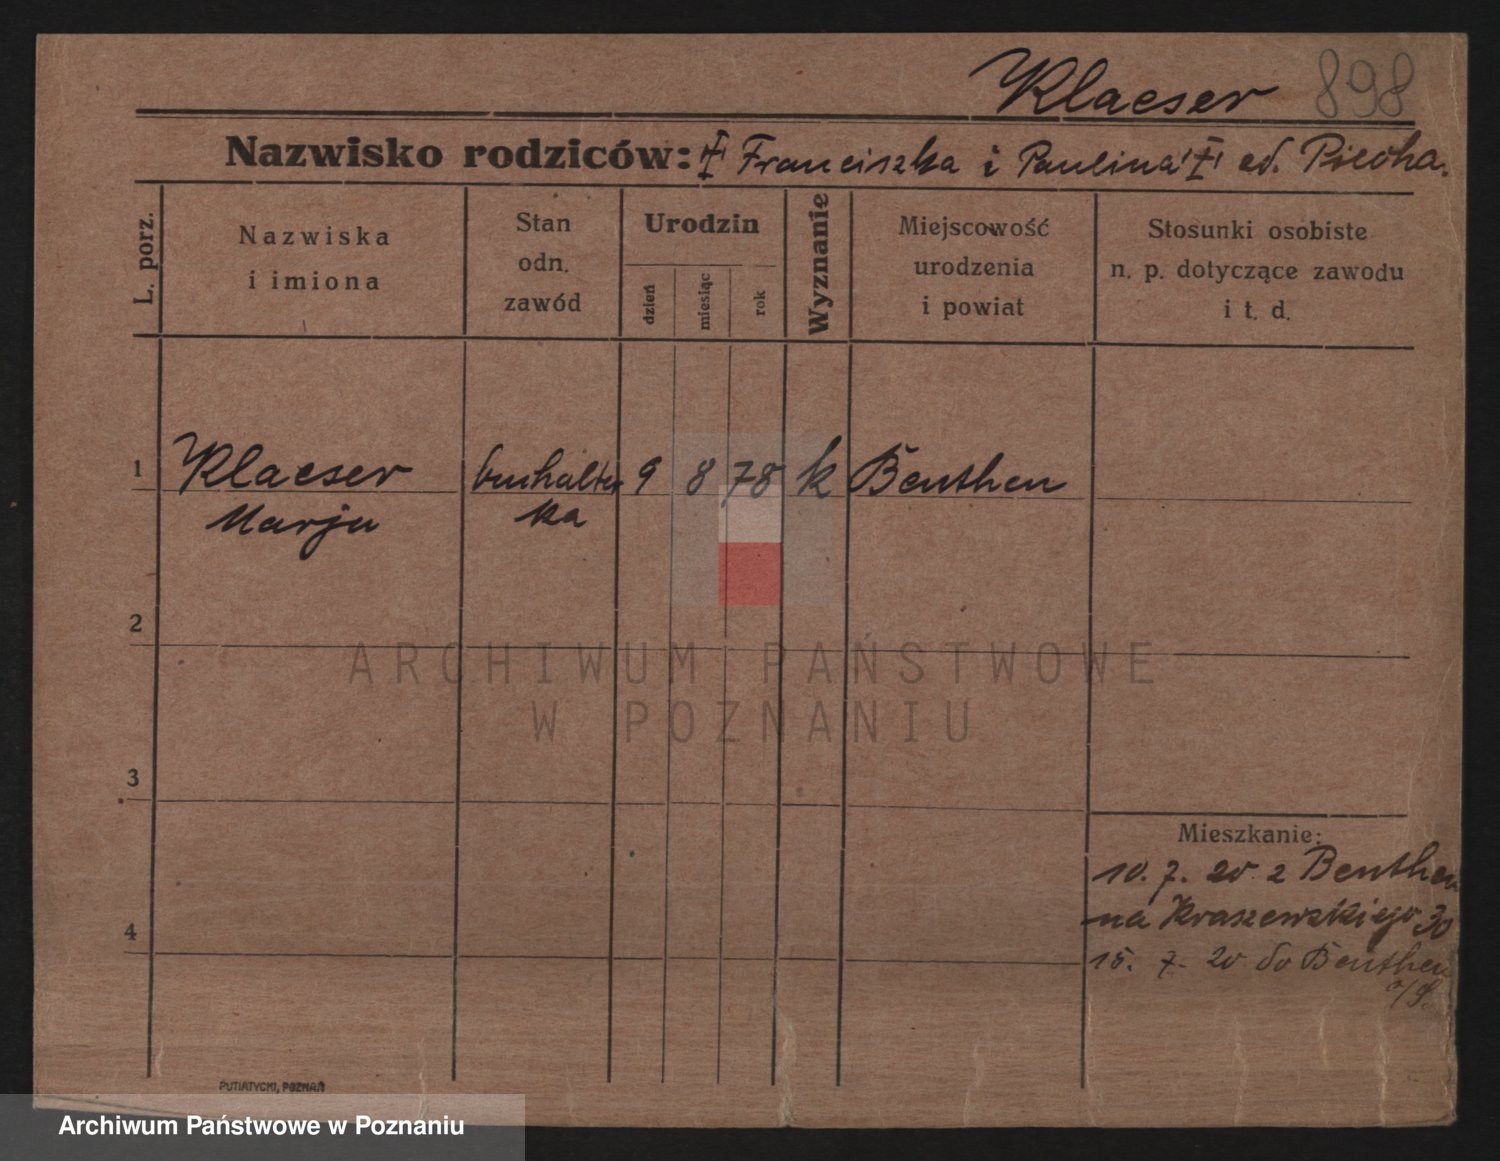 Klaeser 898
Nazwisko rodziców: Franciszka i Paulina Piecha.
L. porz.
Nazwiska
i imiona
Stan
odn.
zawód
Urodzin
dzień
miesiąc
rok
Wyznanie
Miejscowość
urodzenia
i powiat
Stosunki osobiste
n. p. dotyczące zawodu
i t. d.
1 Klaeser buhalter 9 8 78 k Beuthen
Marja ka
2
ARCHIWUM PAŃSTWOWE
W POZNANIU
3
Mieszkanie:
10. 7. 20 z Beuthen
na Kraszewskiego 30
4
15. 7. 20 do Beuthen
o/S.
PUTIATYCKI, POZNAŃ
Archiwum Państwowe w Poznaniu